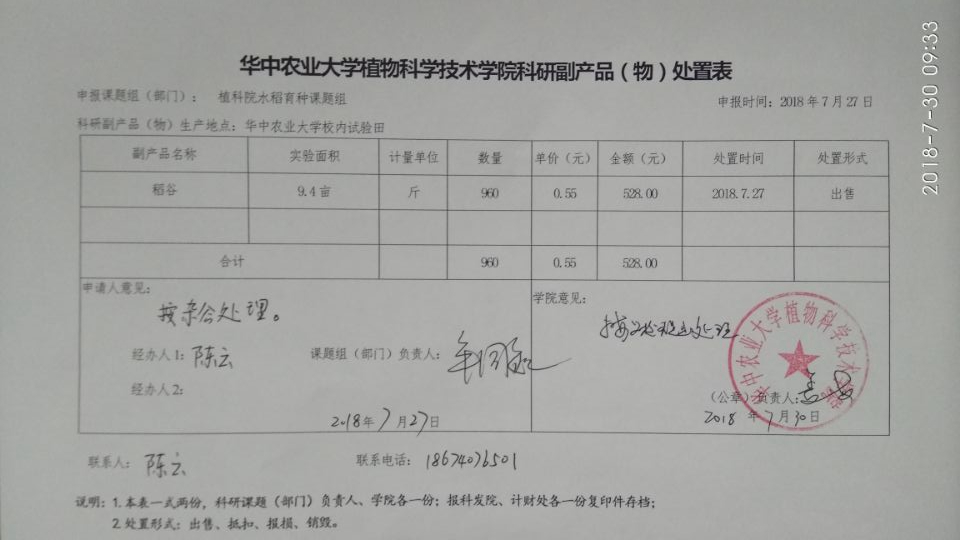 华中农业大学植物科学技术学院科研副产品(物)处置表
申报课题组(部门): 植科院水稻育种课题组 申报时间: 2018年7月27日
科研副产品(物)生产地点: 华中农业大学校内试验田
副产品名称 实验面积 计量单位 数量 单价(元) 金额(元) 处置时间 处置形式
稻谷 9.4亩 斤 960 0.55 528.00 2018.7.27 出售
合计 960 0.55 528.00
申请人意见:
按杂谷处理。
经办人1: 陈云 课题组(部门)负责人:
经办人2:
2018年7月27日
学院意见:
处理
华中农业大学植物科学技术学院
(公章)负责人:
2018年7月30日
联系人: 陈云 联系电话: 18674076501
说明: 1.本表一式两份,科研课题(部门)负责人、学院各一份;报科发院、计财处各一份复印件存档;
2.处置形式: 出售、抵扣、报损、销毁。
2018-7-30 09:33